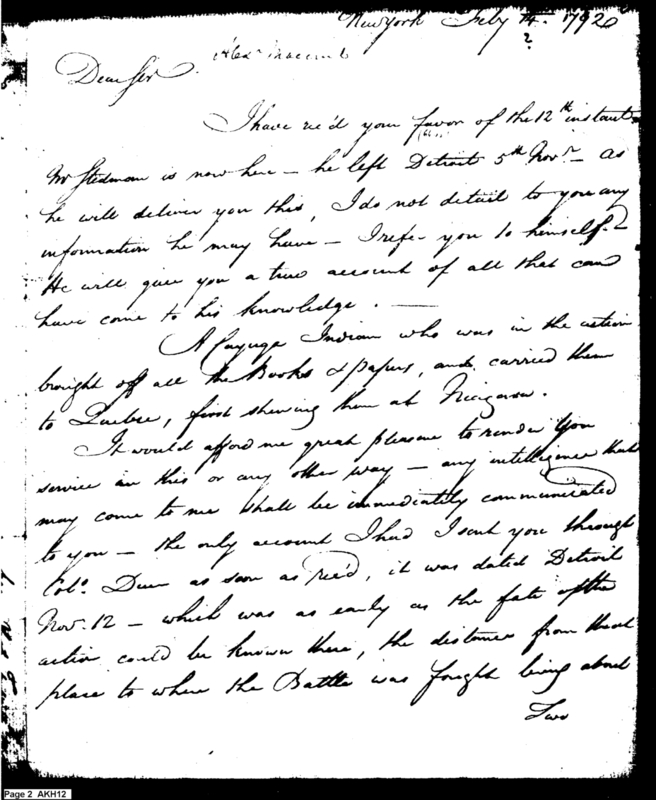 New York Feby 14. 1792
?
Alexr Macomb
Dear Sir
I have rec'd your favor of the 12th instant
Mr Stedman is now here – he left Detroit 5th Novr – as
he will deliver you this, I do not detail to you any
information he may have – I refer you to himself –
He will give you a true account of all that can
have come to his knowledge. —
A Cayuga Indian who was in the action
brought off all the Books & papers, and carried them
to Quebec, first shewing them at Niagara.
It would afford me great pleasure to render you
service in this or any other way – any intelligence that
may come to me shall be immediately communicated
to you – the only account I had I sent you through
Colo. Duer as soon as rec'd, it was dated Detroit
Nov. 12 – which was as early as the fate of the
action could be known there, the distance from that
place to where the Battle was fought being about
Two
Page 2 AKH12